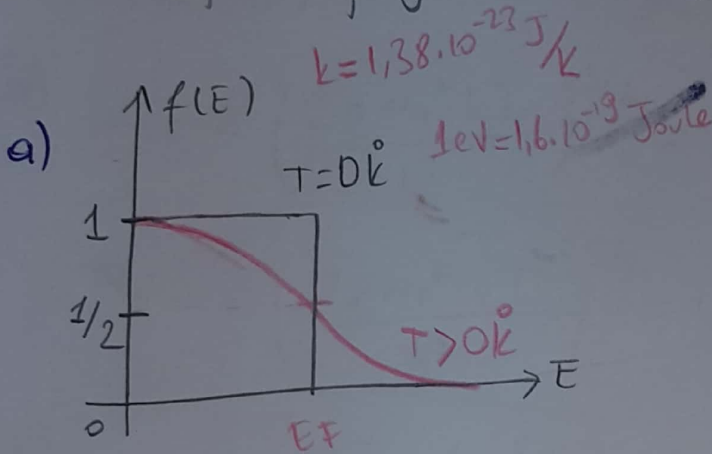 k=1,38.10^-23 J/K
1eV=1,6.10^-19 Joule
a)
f(E)
T=0°K
1
1/2
T>0°K
E
0
EF